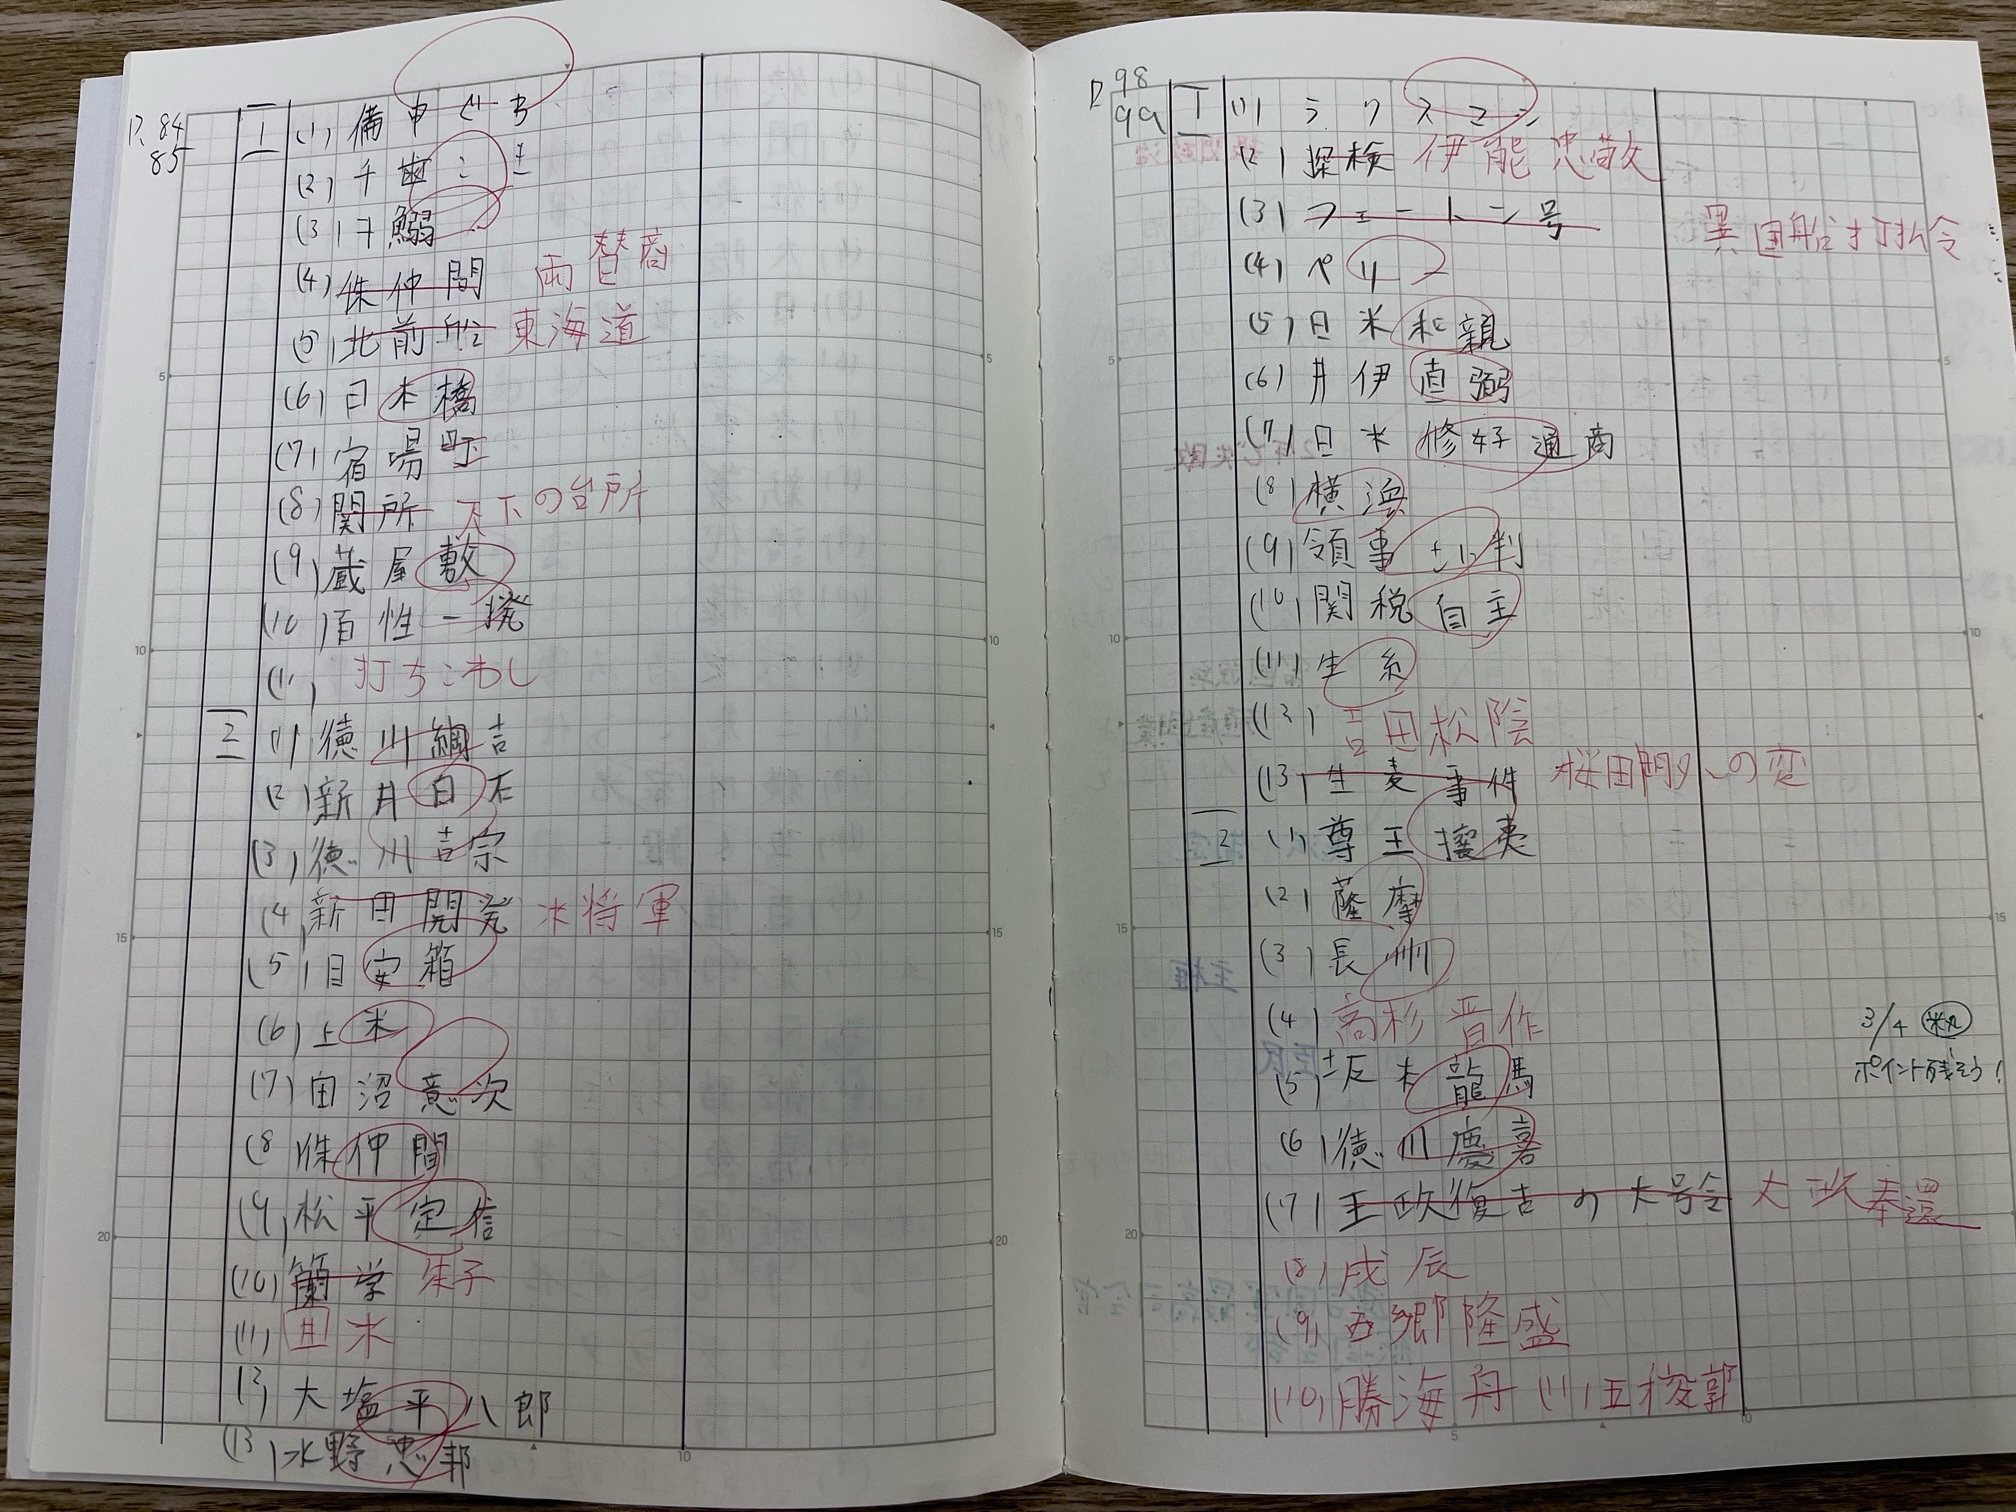 P.84
85
1
(1) 備中ぐわ
(2) 千歯こき
(3) 干鰯
(4) 株仲間 両替商
(5) 北前船 東海道
(6) 日本橋
(7) 宿場町
(8) 関所 天下の台所
(9) 蔵屋敷
(10) 百姓一揆
(11) 打ちこわし
2
(1) 徳川綱吉
(2) 新井白石
(3) 徳川吉宗
(4) 新田開発 米将軍
(5) 目安箱
(6) 上米
(7) 田沼意次
(8) 株仲間
(9) 松平定信
(10) 蘭学 朱子
(11) 囲米
(12) 大塩平八郎
(13) 水野忠邦
P.98
99
1
(1) ラクスマン
(2) 探検 伊能忠敬
(3) フェートン号 異国船打払令
(4) ペリー
(5) 日米和親
(6) 井伊直弼
(7) 日米修好通商
(8) 横浜
(9) 領事裁判
(10) 関税自主
(11) 生糸
(12) 吉田松陰
(13) 生麦事件 桜田門外の変
2
(1) 尊王攘夷
(2) 薩摩
(3) 長州
(4) 高杉晋作
(5) 坂本龍馬
(6) 徳川慶喜
(7) 王政復古の大号令 大政奉還
(8) 戊辰
(9) 西郷隆盛
(10) 勝海舟 (11) 五稜郭
3/4
ポイント残そう!